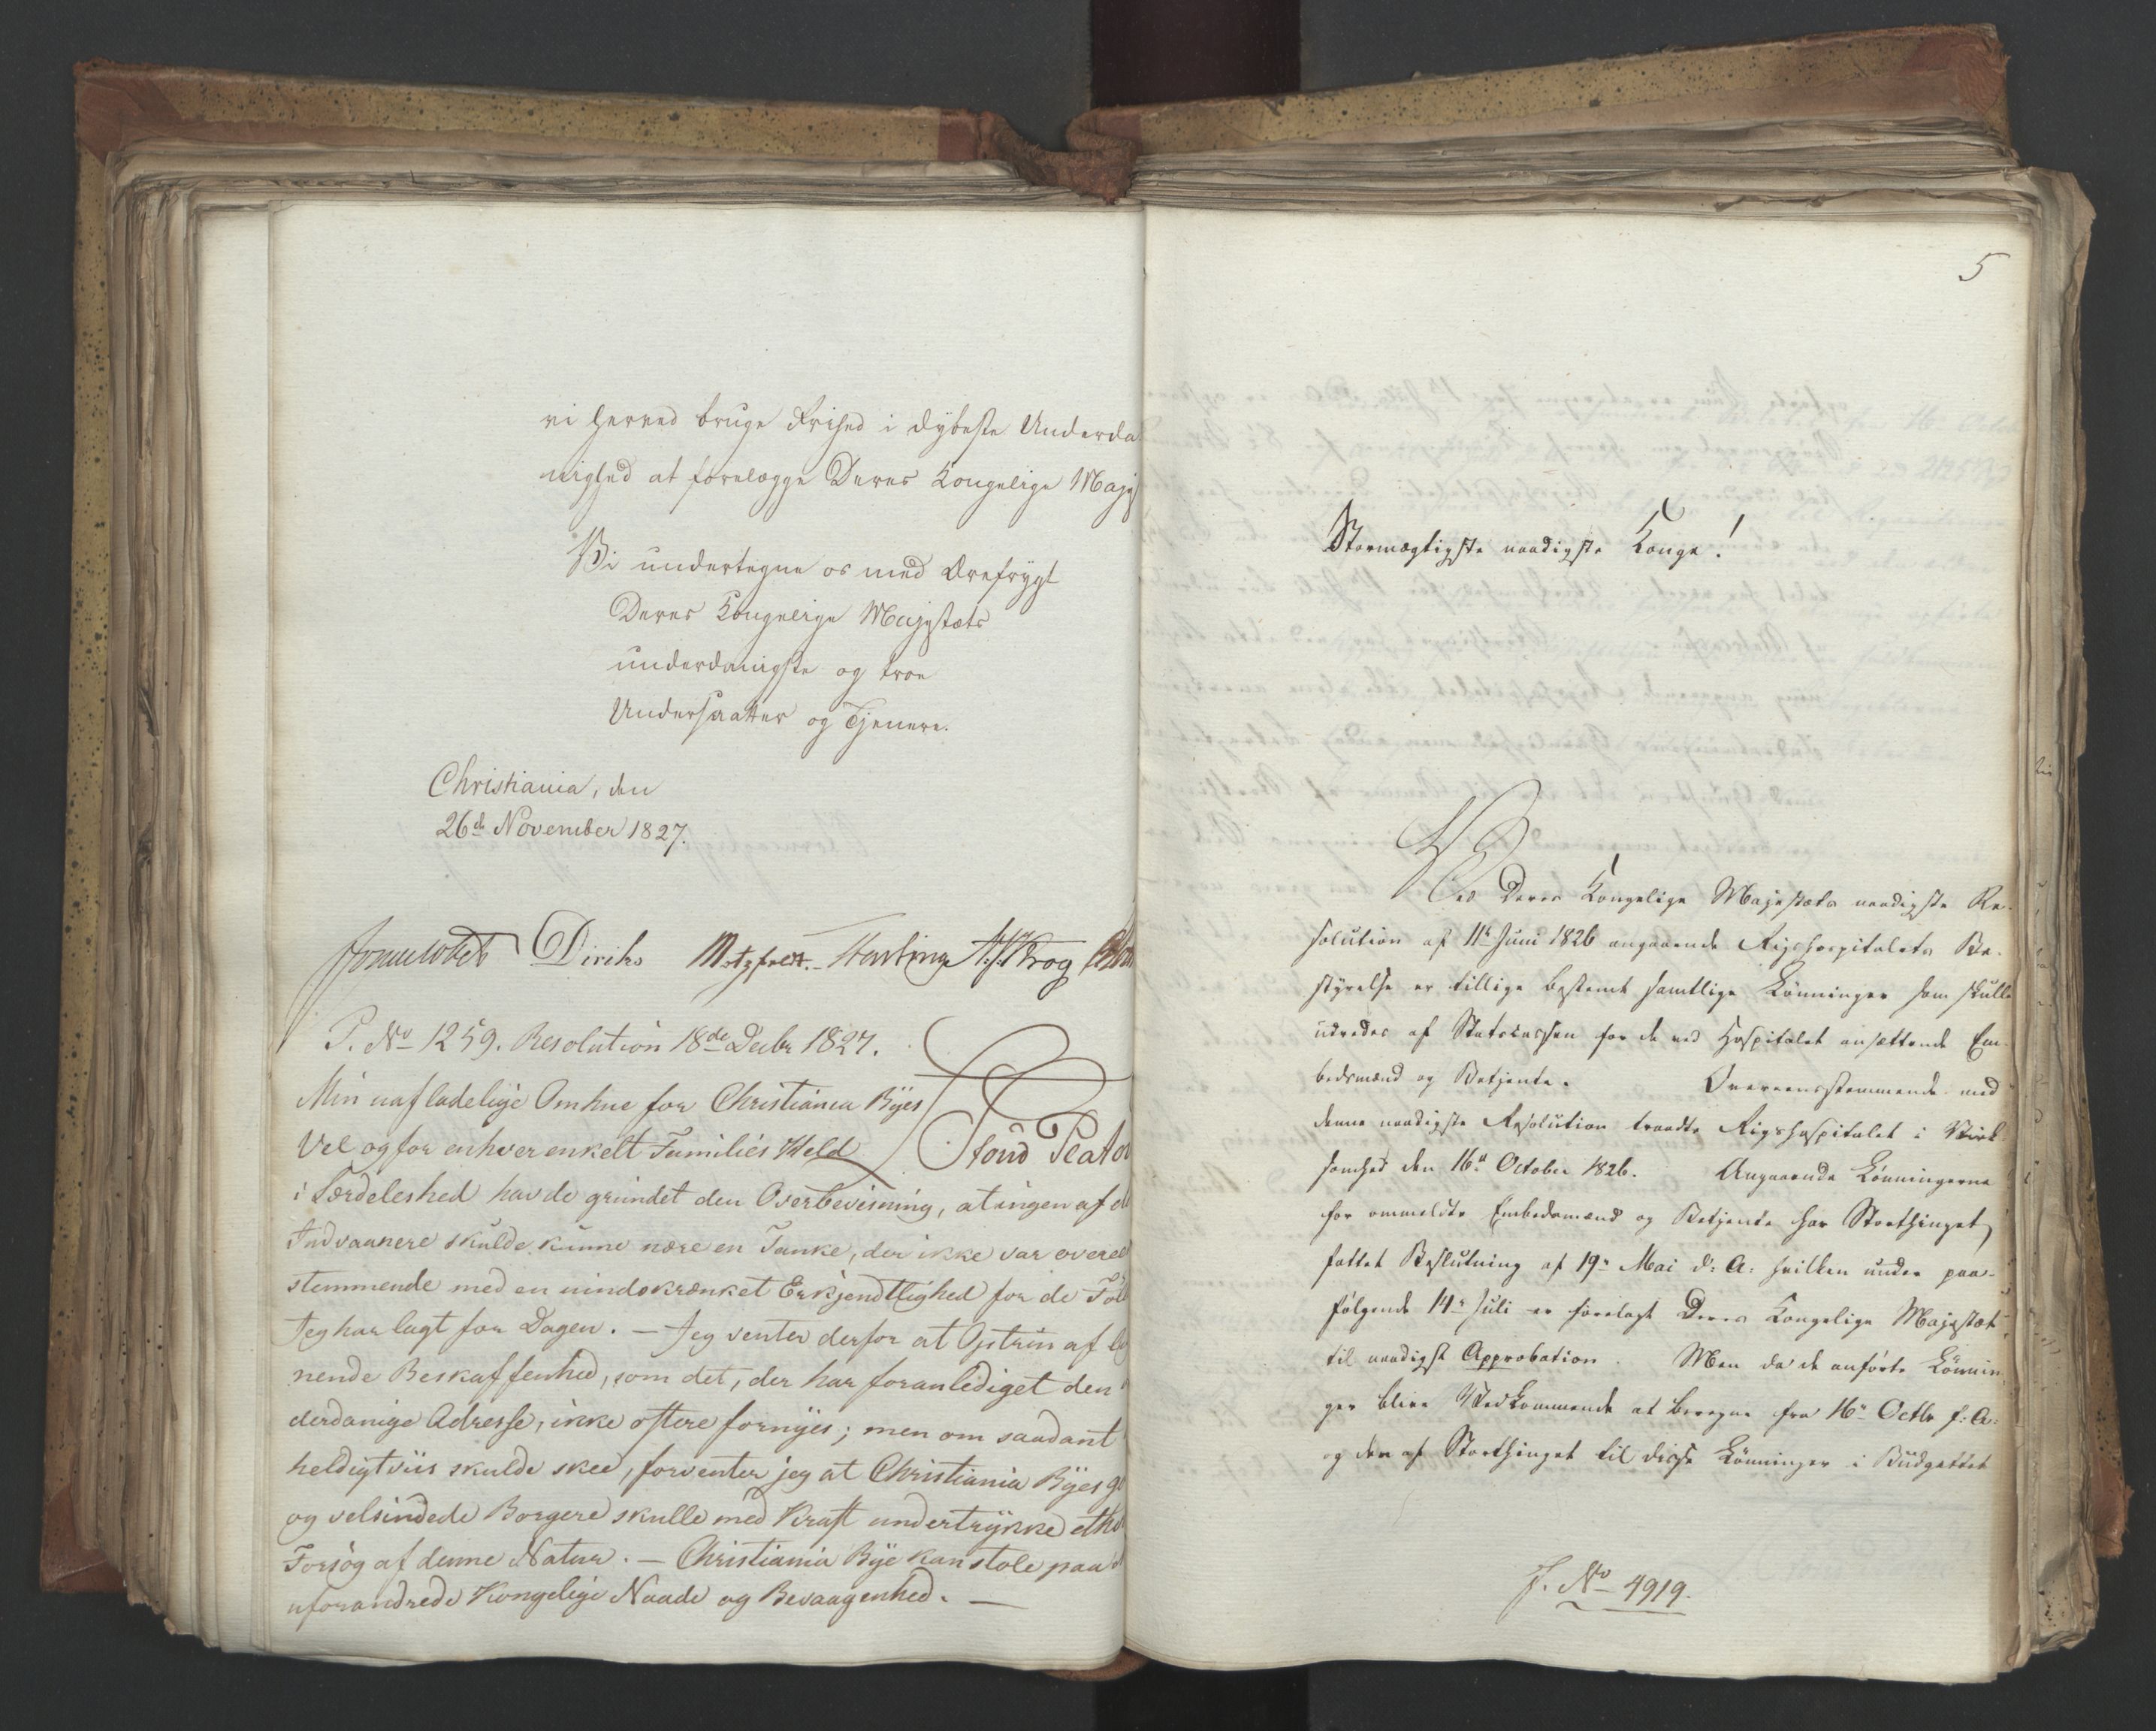 vi herved bruge Frihed i dybeste Underda
nighed at forelægge Deres Kongelige Majes
Vi undertegne os med Ærefrygt
Deres Kongelige Majestæts
underdanigste og troe
Undersaatter og Tjenere.
Christiania, den
26de November 1827.
Diriks Motzfeldt. Fasting
P. No 1259. Resolution 18de Decbr 1827.
Min uafladelige Omhue for Christiania Byes
Vel og for enhver enkelt Families Held
i Særdeleshed havde grundet den Overbeviisning, at ingen af d
Indvaanere skulde kunne nære en Tanke, der ikke var overee
stemmende med en uindskrænket Erkjendtlighed for de Föl
Jeg har lagt for Dagen. — Jeg venter derfor at Optrin af lig
nende Beskaffenhed, som det, der har foranlediget den
derdanige Adresse, ikke oftere fornyes; men om saadant
heldigtviis skulde skee, forventer jeg at Christiania Byes go
og velsindede Borgere skulle med Kraft undertrykke ethv
Forsög af denne Natur. — Christiania Bye kan stole paa
uforandrede Kongelige Naade og Bevaagenhed. —
5
Stormægtigste naadigste Konge!
Ved Deres Kongelige Majestæts naadigste Re-
solution af 11te Juni 1826 angaaende Rigshospitalets Be-
styrelse er tillige bestemt samtlige Lönninger som skulle
udredes af Statskassen for de ved Hospitalet ansættende Em-
bedsmænd og Betjente. Overeensstemmende med
denne naadigste Resolution traadte Rigshospitalet i Virk-
somhed den 16de October 1826. Angaaende Lönningerne
for ommeldte Embedsmænd og Betjente har Storthinget
fattet Beslutning af 19de Mai d: A: hvilken under paa-
fölgende 14de Juli er forelagt Deres Kongelige Majestæt
til naadigst Approbation. Men da de anförte Lönnin
ger blive Vedkommende at beregne fra 16de Octbr f: A:
og den af Storthinget til disse Lönninger i Budgettet
J. No 4919.